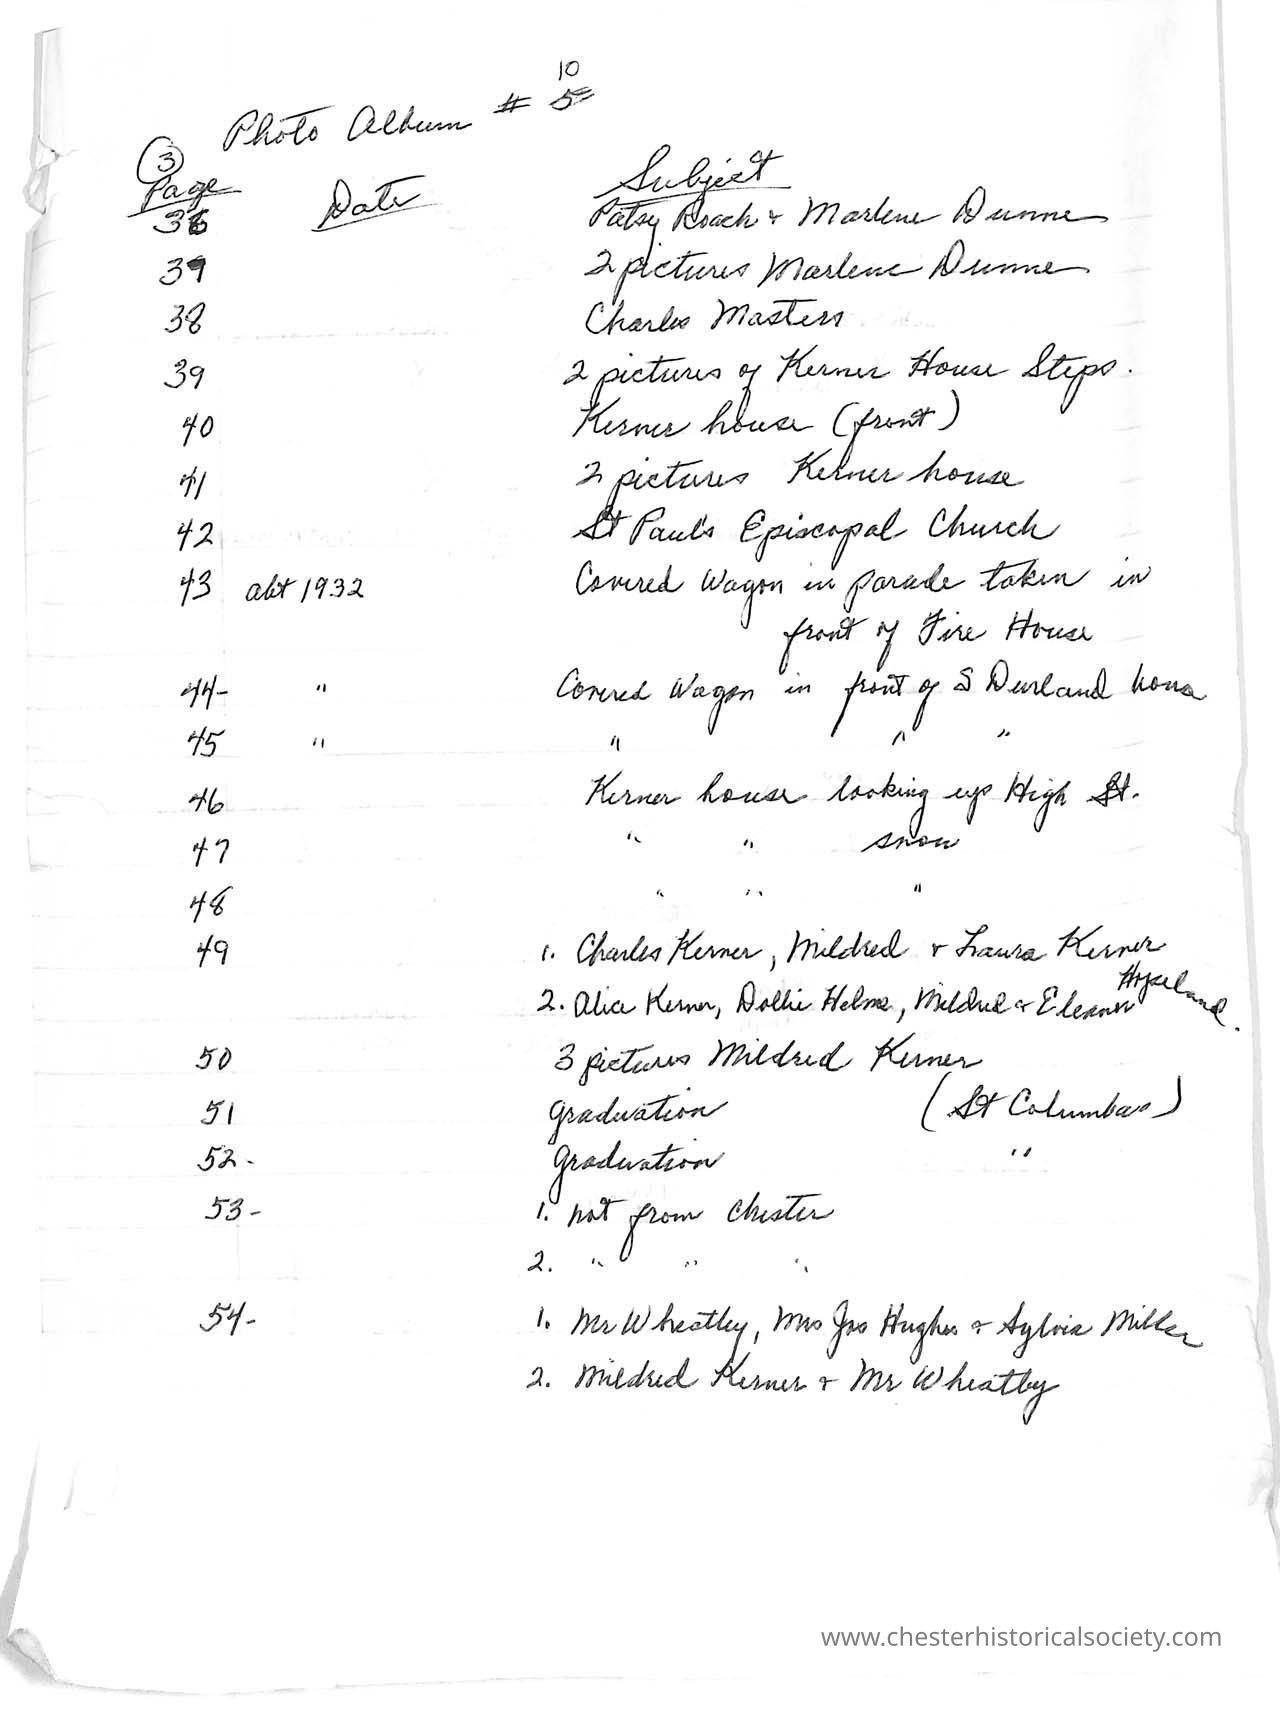 10
Photo Album # 5
3
Page Date Subject
36 Patsy Roach & Marlene Dunne
39 2 pictures Marlene Dunne
38 Charles Masters
39 2 pictures of Kerner House Steps.
40 Kerner house (front)
41 2 pictures Kerner house
42 St Paul's Episcopal Church
43 abt 1932 Covered Wagon in parade taken in
front of Fire House
44- " Covered Wagon in front of S Durland
45 " " " "
46 Kerner house looking up High St.
47 " " snow
48 " " "
49 1. Charles Kerner, Mildred & Laura Kerner
2. Alice Kerner, Dollie Helms, Mildred & Eleanor
50 3 pictures Mildred Kerner
51 graduation (St Columbas)
52- graduation "
53- 1. not from Chester
2. " " "
54- 1. Mr Wheatley, Mrs Jas Hughes & Sylvia Miller
2. Mildred Kerner & Mr Wheatley
www.chesterhistoricalsociety.com